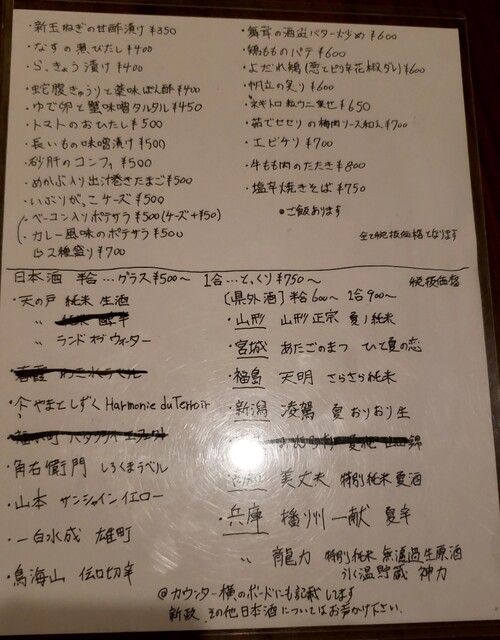 ・新玉ねぎの甘酢漬け ¥350
・なすの煮びたし ¥400
・らっきょう漬け ¥400
・蛇腹きゅうりと薬味ぽん酢 ¥400
・ゆで卵と蟹味噌タルタル ¥450
・トマトのおひたし ¥500
・長いもの味噌漬け ¥500
・砂肝のコンフィ ¥500
・めかぶ入り出汁巻きたまご ¥500
・いぶりがっこチーズ ¥500
・ベーコン入りポテサラ ¥500 (チーズ+¥50)
・カレー風味のポテサラ ¥500
2種盛り ¥700
・舞茸の酒盗バター炒め ¥600
・鶏もものパテ ¥600
・よだれ鶏(葱とピリ辛花椒ダレ) ¥600
・帆立の炙り ¥600
・ネギトロ粒ウニ乗せ ¥650
・茹でセセリの梅肉ソース和え ¥700
・エビチリ ¥700
・牛もも肉のたたき ¥800
・塩辛焼きそば ¥750
●ご飯あります
全て税抜価格となります
日本酒 半合…グラス¥500〜 1合…とっくり¥750〜 税抜価格
・天の戸 純米 生酒
〃
〃 ランドオブウォーター
・やまとしずく Harmonie du Terroir
・角右衛門 しろくまラベル
・山本 サンシャインイエロー
・一白水成 雄町
・鳥海山 伝口切辛
〔県外酒〕半合600〜 1合900〜
・山形 山形正宗 夏ノ純米
・宮城 あたごのまつ ひと夏の恋
・福島 天明 さらさら純米
・新潟 凌駕 夏おりおり生
美丈夫 特別純米 夏酒
・兵庫 播州一献 夏辛
〃 龍力 特別純米 無濾過生原酒
氷温貯蔵 神力
@カウンター横のボードにも記載します
新政、その他日本酒についてはお声かけ下さい。